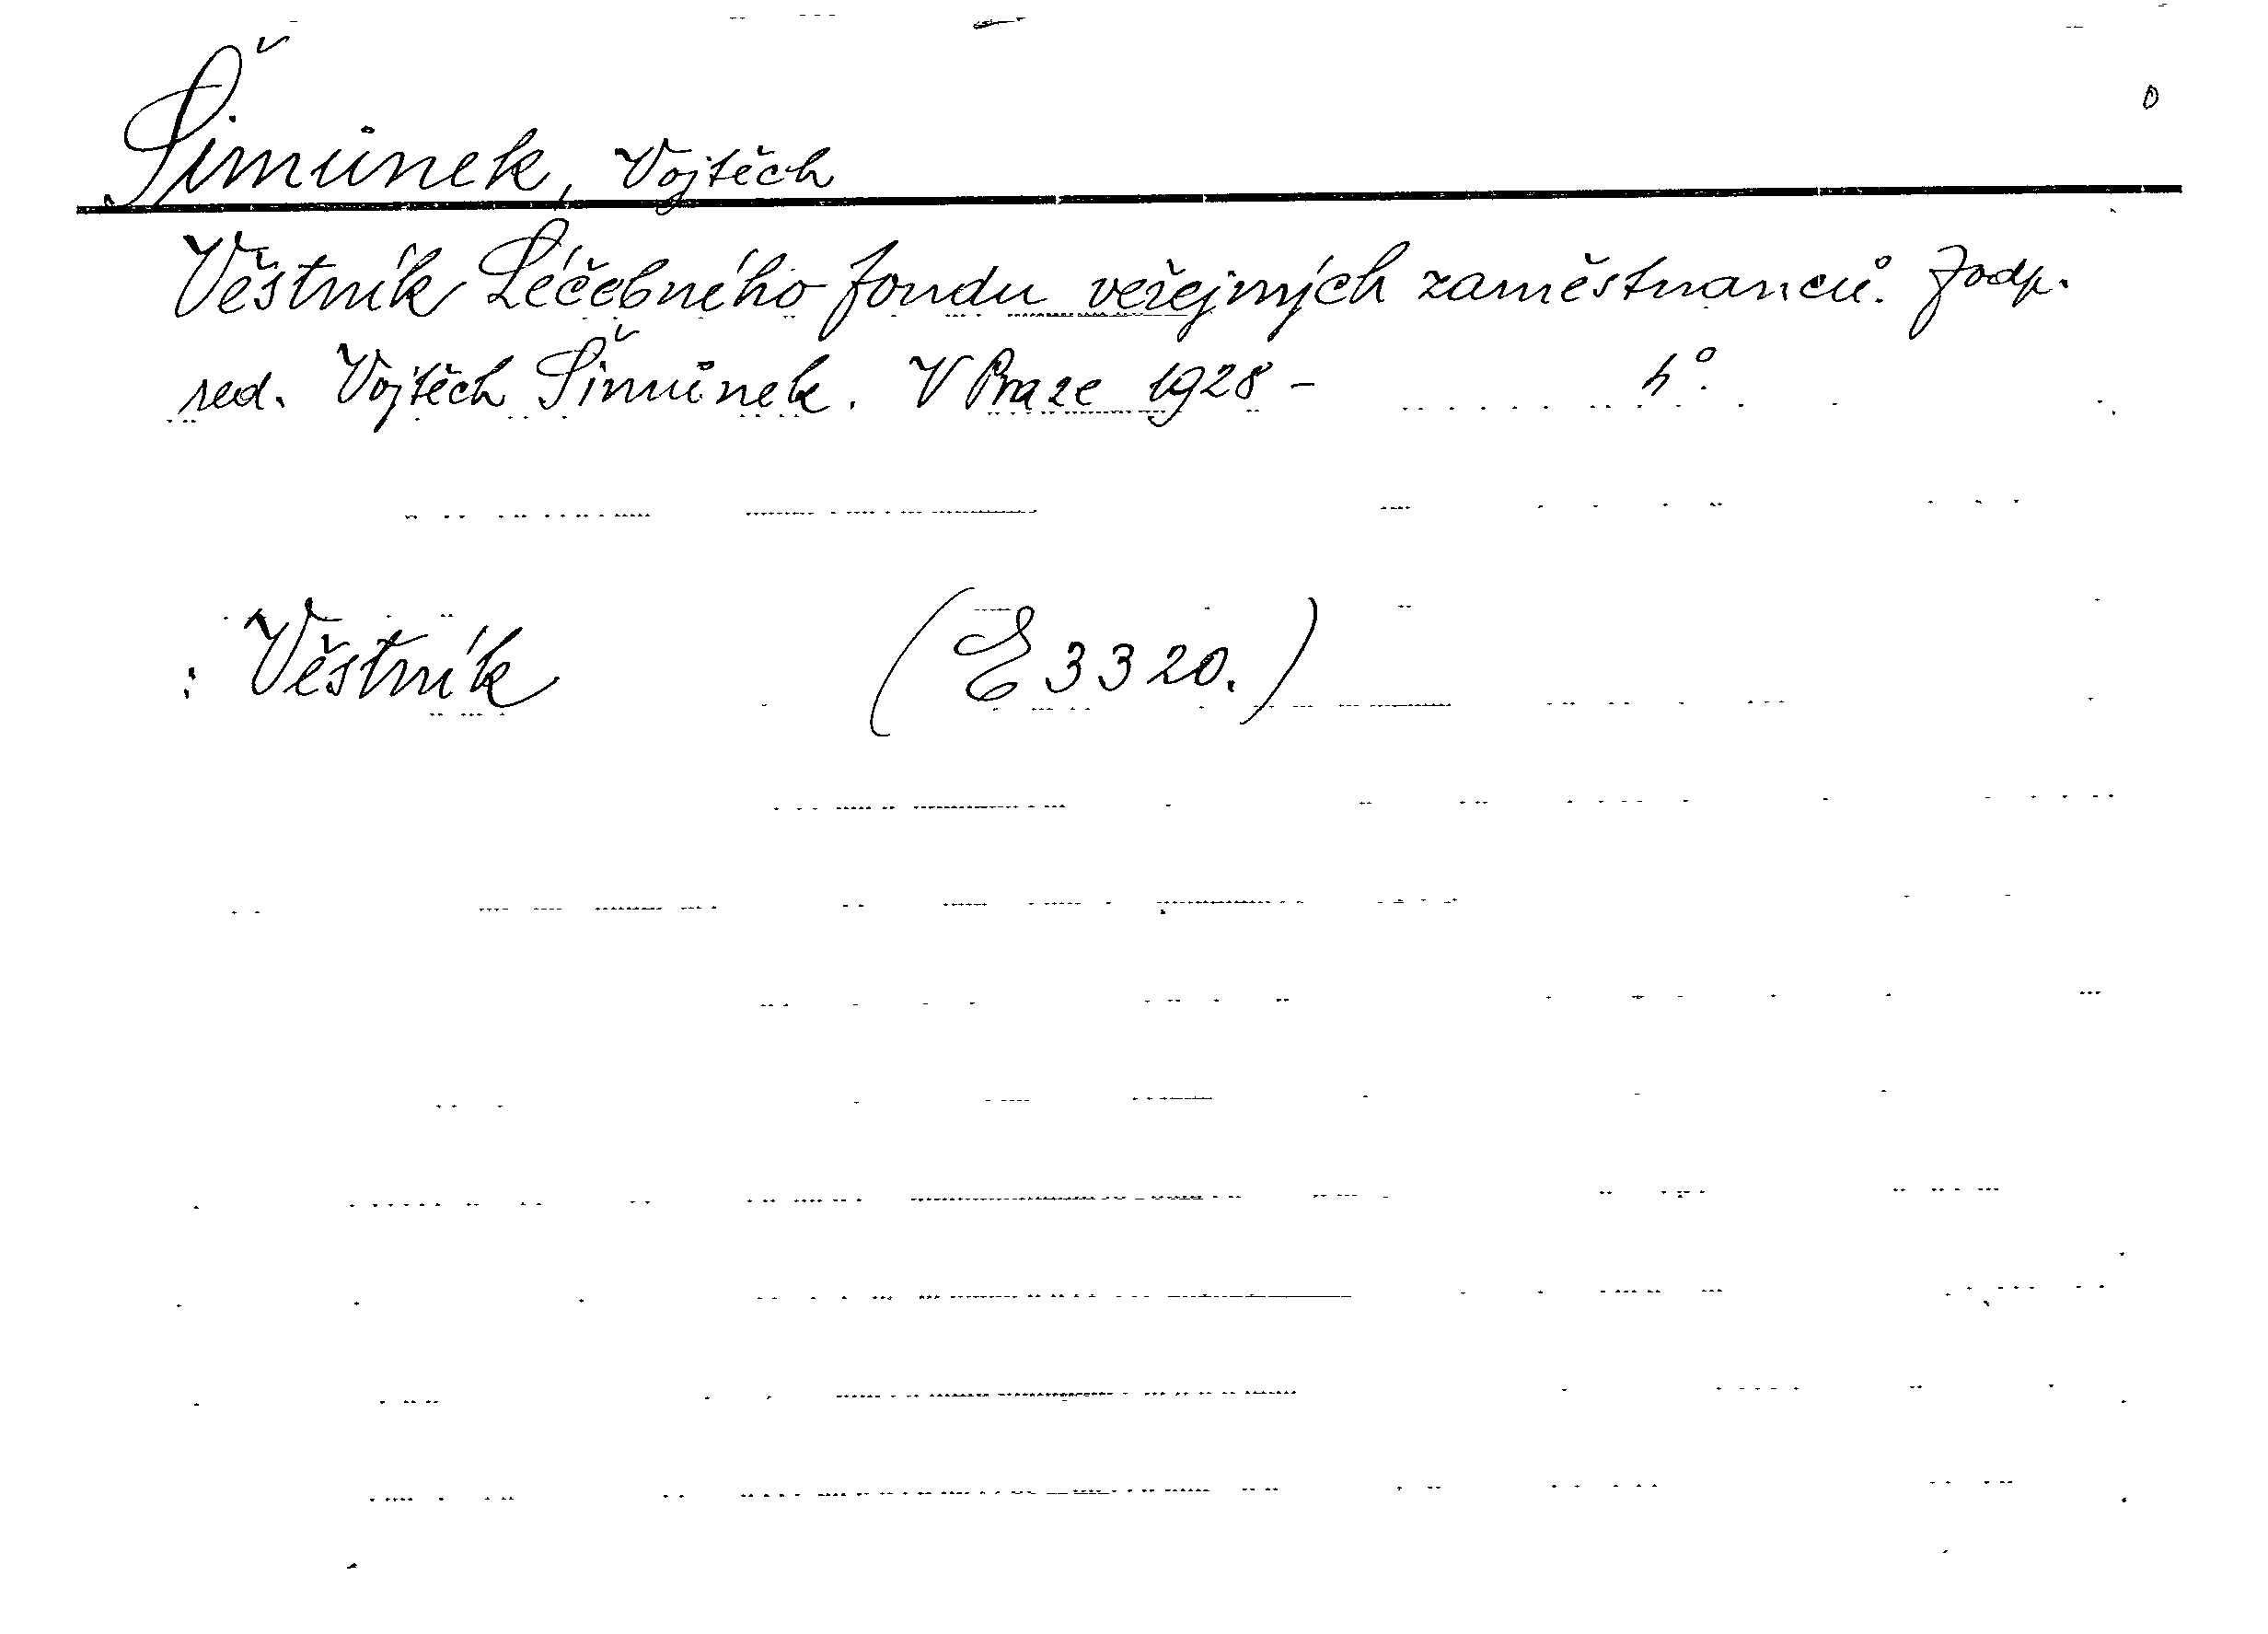 0
Šimůnek, Vojtěch
Věstník Léčebného fondu veřejných zaměstnanců. Zodp.
red. Vojtěch Šimůnek. V Praze 1928 - 4°.
: Věstník (E 3320.)